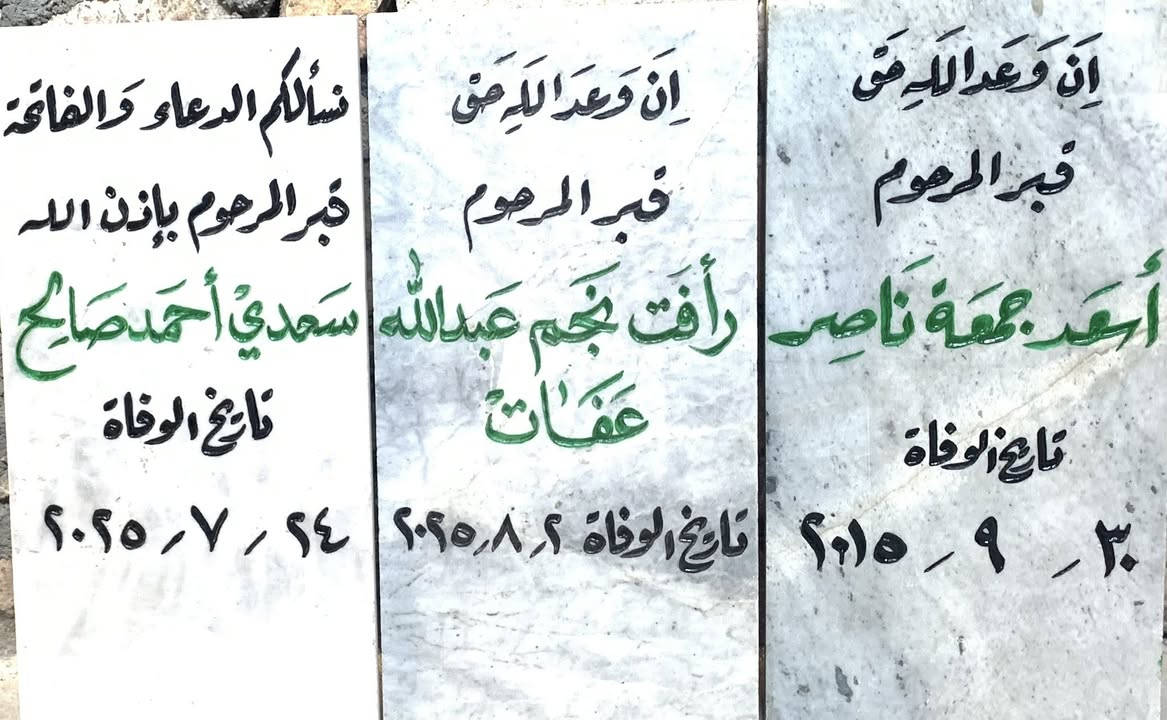 إن وعد الله حق
قبر المرحوم
أسعد جمعة ناصر
تاريخ الوفاة
٣٠ / ٩ / ٢٠١٥
إن وعد الله حق
قبر المرحوم
رأفت نجم عبدالله
عفات
تاريخ الوفاة ٢ / ٨ / ٢٠٢٥
نسألكم الدعاء والفاتحة
قبر المرحوم بإذن الله
سعدي أحمد صالح
تاريخ الوفاة
٢٤ / ٧ / ٢٠٢٥